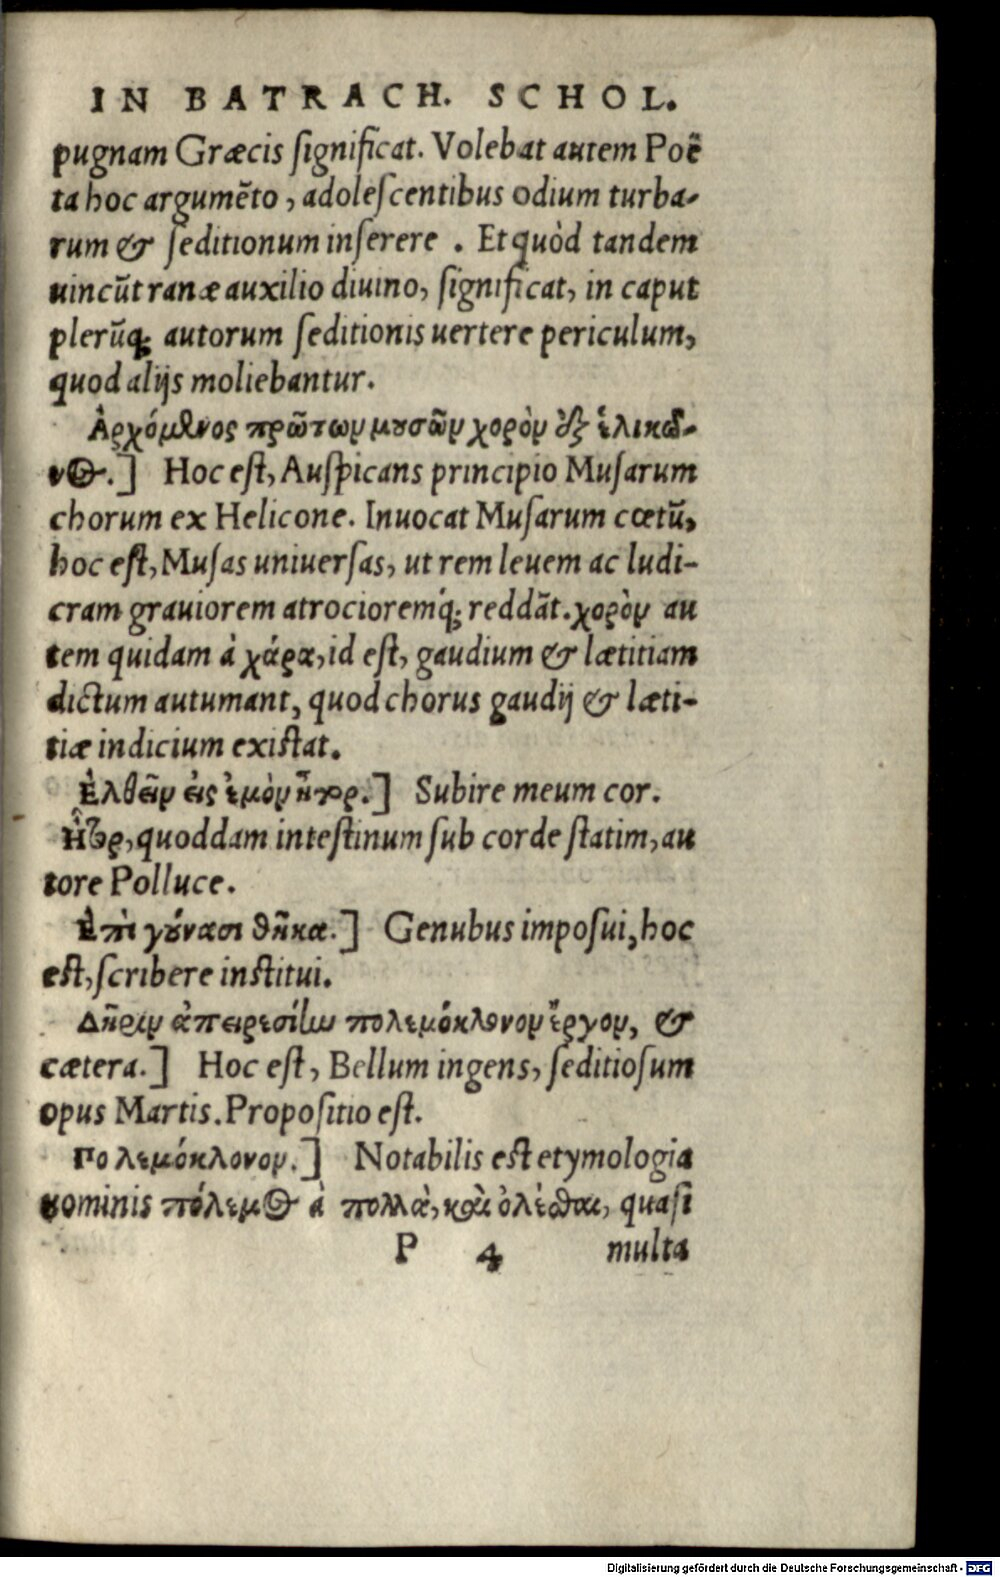 IN BATRACH. SCHOL.
pugnam Græcis ſignificat. Volebat autem Poë
ta hoc argumēto, adoleſcentibus odium turba-
rum & ſeditionum inſerere. Et quòd tandem
uincūt ranæ auxilio diuino, ſignificat, in caput
plerūq; autorum ſeditionis uertere periculum,
quod alijs moliebantur.
Ἀρχόμενος πρῶτον μουσῶν χορὸν ἐξ ἑλικῶ-
νος.] Hoc eſt, Auſpicans principio Muſarum
chorum ex Helicone. Inuocat Muſarum cœtū,
hoc eſt, Muſas uniuerſas, ut rem leuem ac ludi-
cram grauiorem atrocioremq́; reddāt. χορὸν au
tem quidam à χάρα, id eſt, gaudium & lætitiam
dictum autumant, quod chorus gaudij & læti-
tiæ indicium exiſtat.
Ἐλθεῖν εἰς ἐμὸν ἦτορ.] Subire meum cor.
Ἦτορ, quoddam inteſtinum ſub corde ſtatim, au
tore Polluce.
Ἐπὶ γούνασι θῆκα.] Genubus impoſui, hoc
eſt, ſcribere inſtitui.
Δῆριν ἀπειρεσίην πολεμόκλονον ἔργον, &
cætera.] Hoc eſt, Bellum ingens, ſeditioſum
opus Martis. Propoſitio eſt.
Πολεμόκλονον.] Notabilis eſt etymologia
nominis πόλεμος à πολλὰ, καὶ ὀλέσθαι, quaſi
P 4 multa
Digitalisierung gefördert durch die Deutsche Forschungsgemeinschaft - DFG